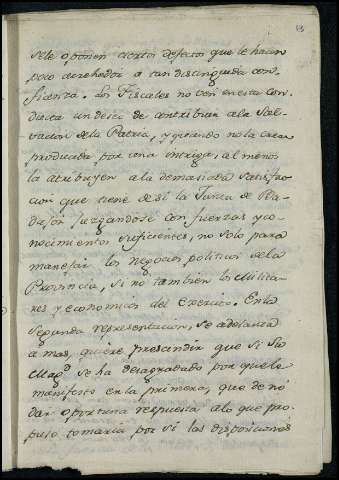 sele oponen ciertos defectos que le hacen
poco acrehedor a tan distinguida con-
fianza. Los Fiscales no ven en esta con-
ducta un deseo de contribuir ala Sal-
vacion dela Patria, y quando no la crean
producida por una intriga, al menos
la atribuyen ala demasiada satisfac-
cion que tiene de sí la Junta de Ba-
dajoz juzgandose con fuerzas y co-
nocimientos suficientes, no solo para
manejar los negocios politicos dela
Provincia, si no tambien los Milita-
res y economicos del Exercito. Enla
segunda representacion, se adelanta
a mas, quiere prescindir que si Su
Mag.d se ha desagradado por quelo
manifestó en la primera, que de nó
dar oportuna respuesta alo que pro-
puso tomaría por sí las disposiciones